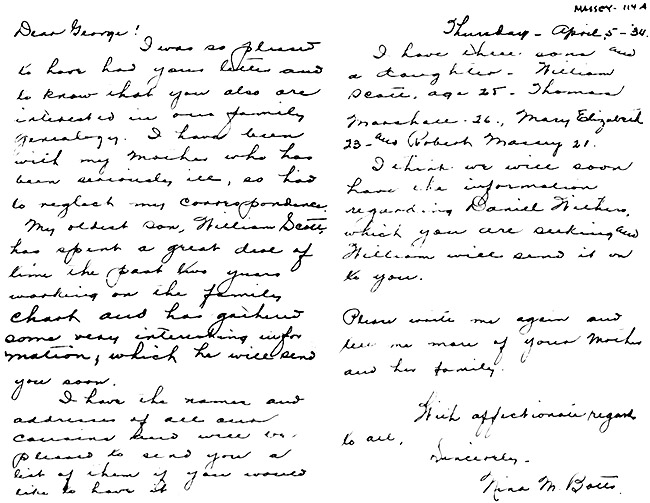 MASSEY - 114A
Dear George!
I was so pleased
to have had your letter and
to know that you also are
interested in our family
genealogy. I have been
with my Mother who has
been seriously ill, so had
to neglect my correspondence.
My oldest son, William Scott,
has spent a great deal of
time the past two years
working on the family
chart and has gathered
some very interesting infor
mation, which he will send
you soon.
I have the names and
addresses of all our
cousins and will be
pleased to send you a
list of them if you would
like to have it
Thursday - April 5 - 34.
I have three sons and
a daughter - William
Scott, age 25 - Thomas
Marshall - 26, Mary Elizabeth
23 - and Robert Massey 21.
I think we will soon
have the information
regarding Daniel Withers,
which you are seeking and
William will send it on
to you.
Please write me again and
tell me more of your Mother
and her family.
With affectionate regards
to all,
Sincerely -
Nina M. Botts.